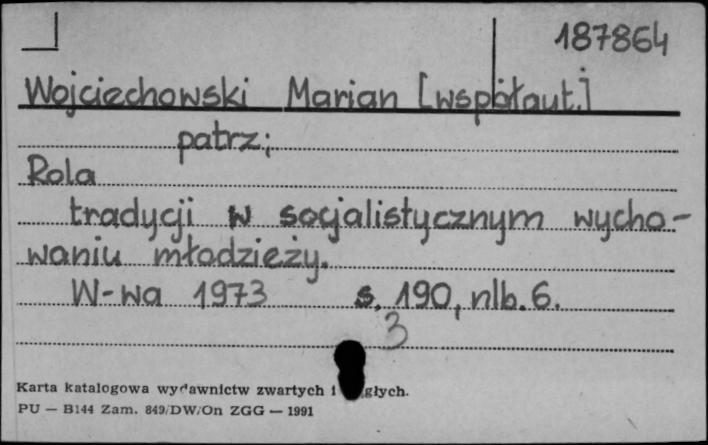 187864
Wojciechowski Marian [współaut.]
patrz;
Rola
tradycji w socjalistycznym wycho-
waniu młodzieży.
W-wa 1973 s. 190, nlb. 6.
3
Karta katalogowa wydawnictw zwartych i głych.
PU — B144 Zam. 849/DW/On ZGG — 1991